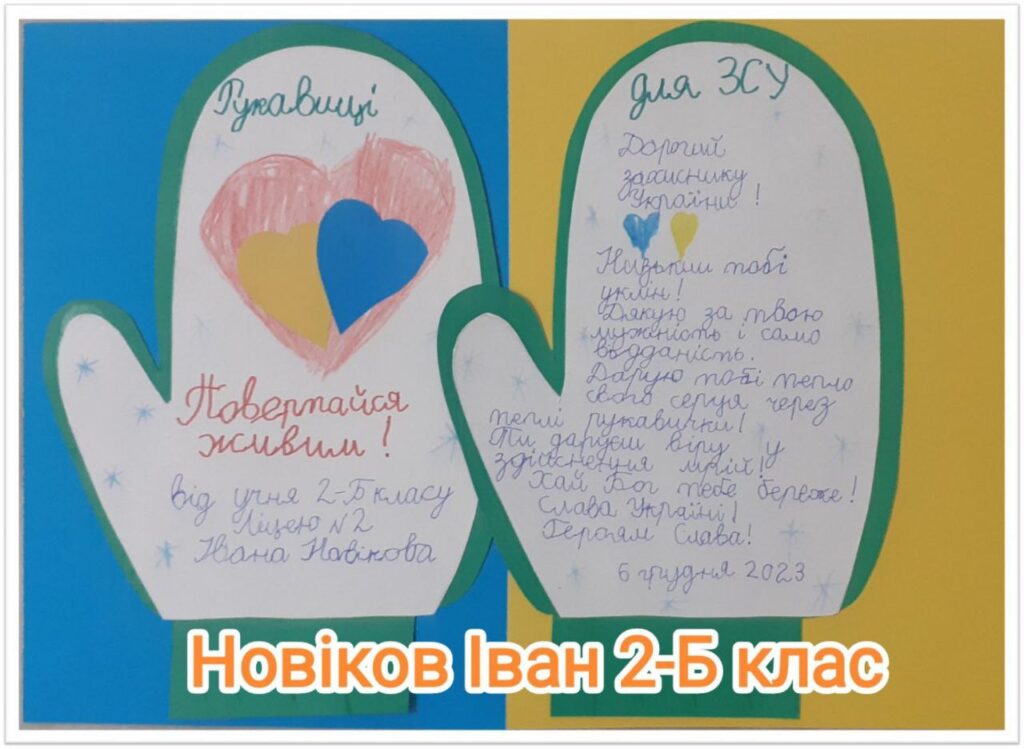 Рукавиці
Повертайся
живим!
від учня 2-Б класу
Ліцею №2
Івана Новікова
для ЗСУ
Дорогий
захиснику
України!
Низький тобі
уклін!
Дякую за твою
мужність і само
відданість.
Дарую тобі тепло
свого серця через
теплі рукавички!
Ти даруєш віру у
здійснення мрій!
Хай Бог тебе береже!
Слава Україні!
Героям Слава!
6 грудня 2023
Новіков Іван 2-Б клас